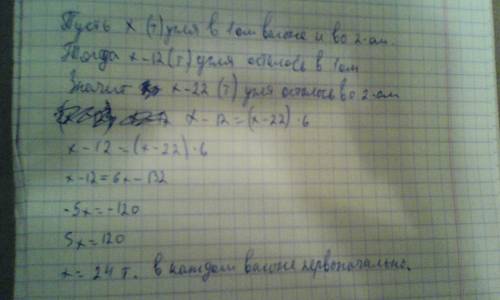 Пусть х (т) угля в 1ом вагоне и во 2-ом.
Тогда х-12 (т) угля осталось в 1ом
Значит х-22 (т) угля осталось во 2-ом
х-12=(х-22)·6
х-12=(х-22)·6
х-12=6х-132
-5х=-120
5х=120
х=24 т. в каждом вагоне первоначально.